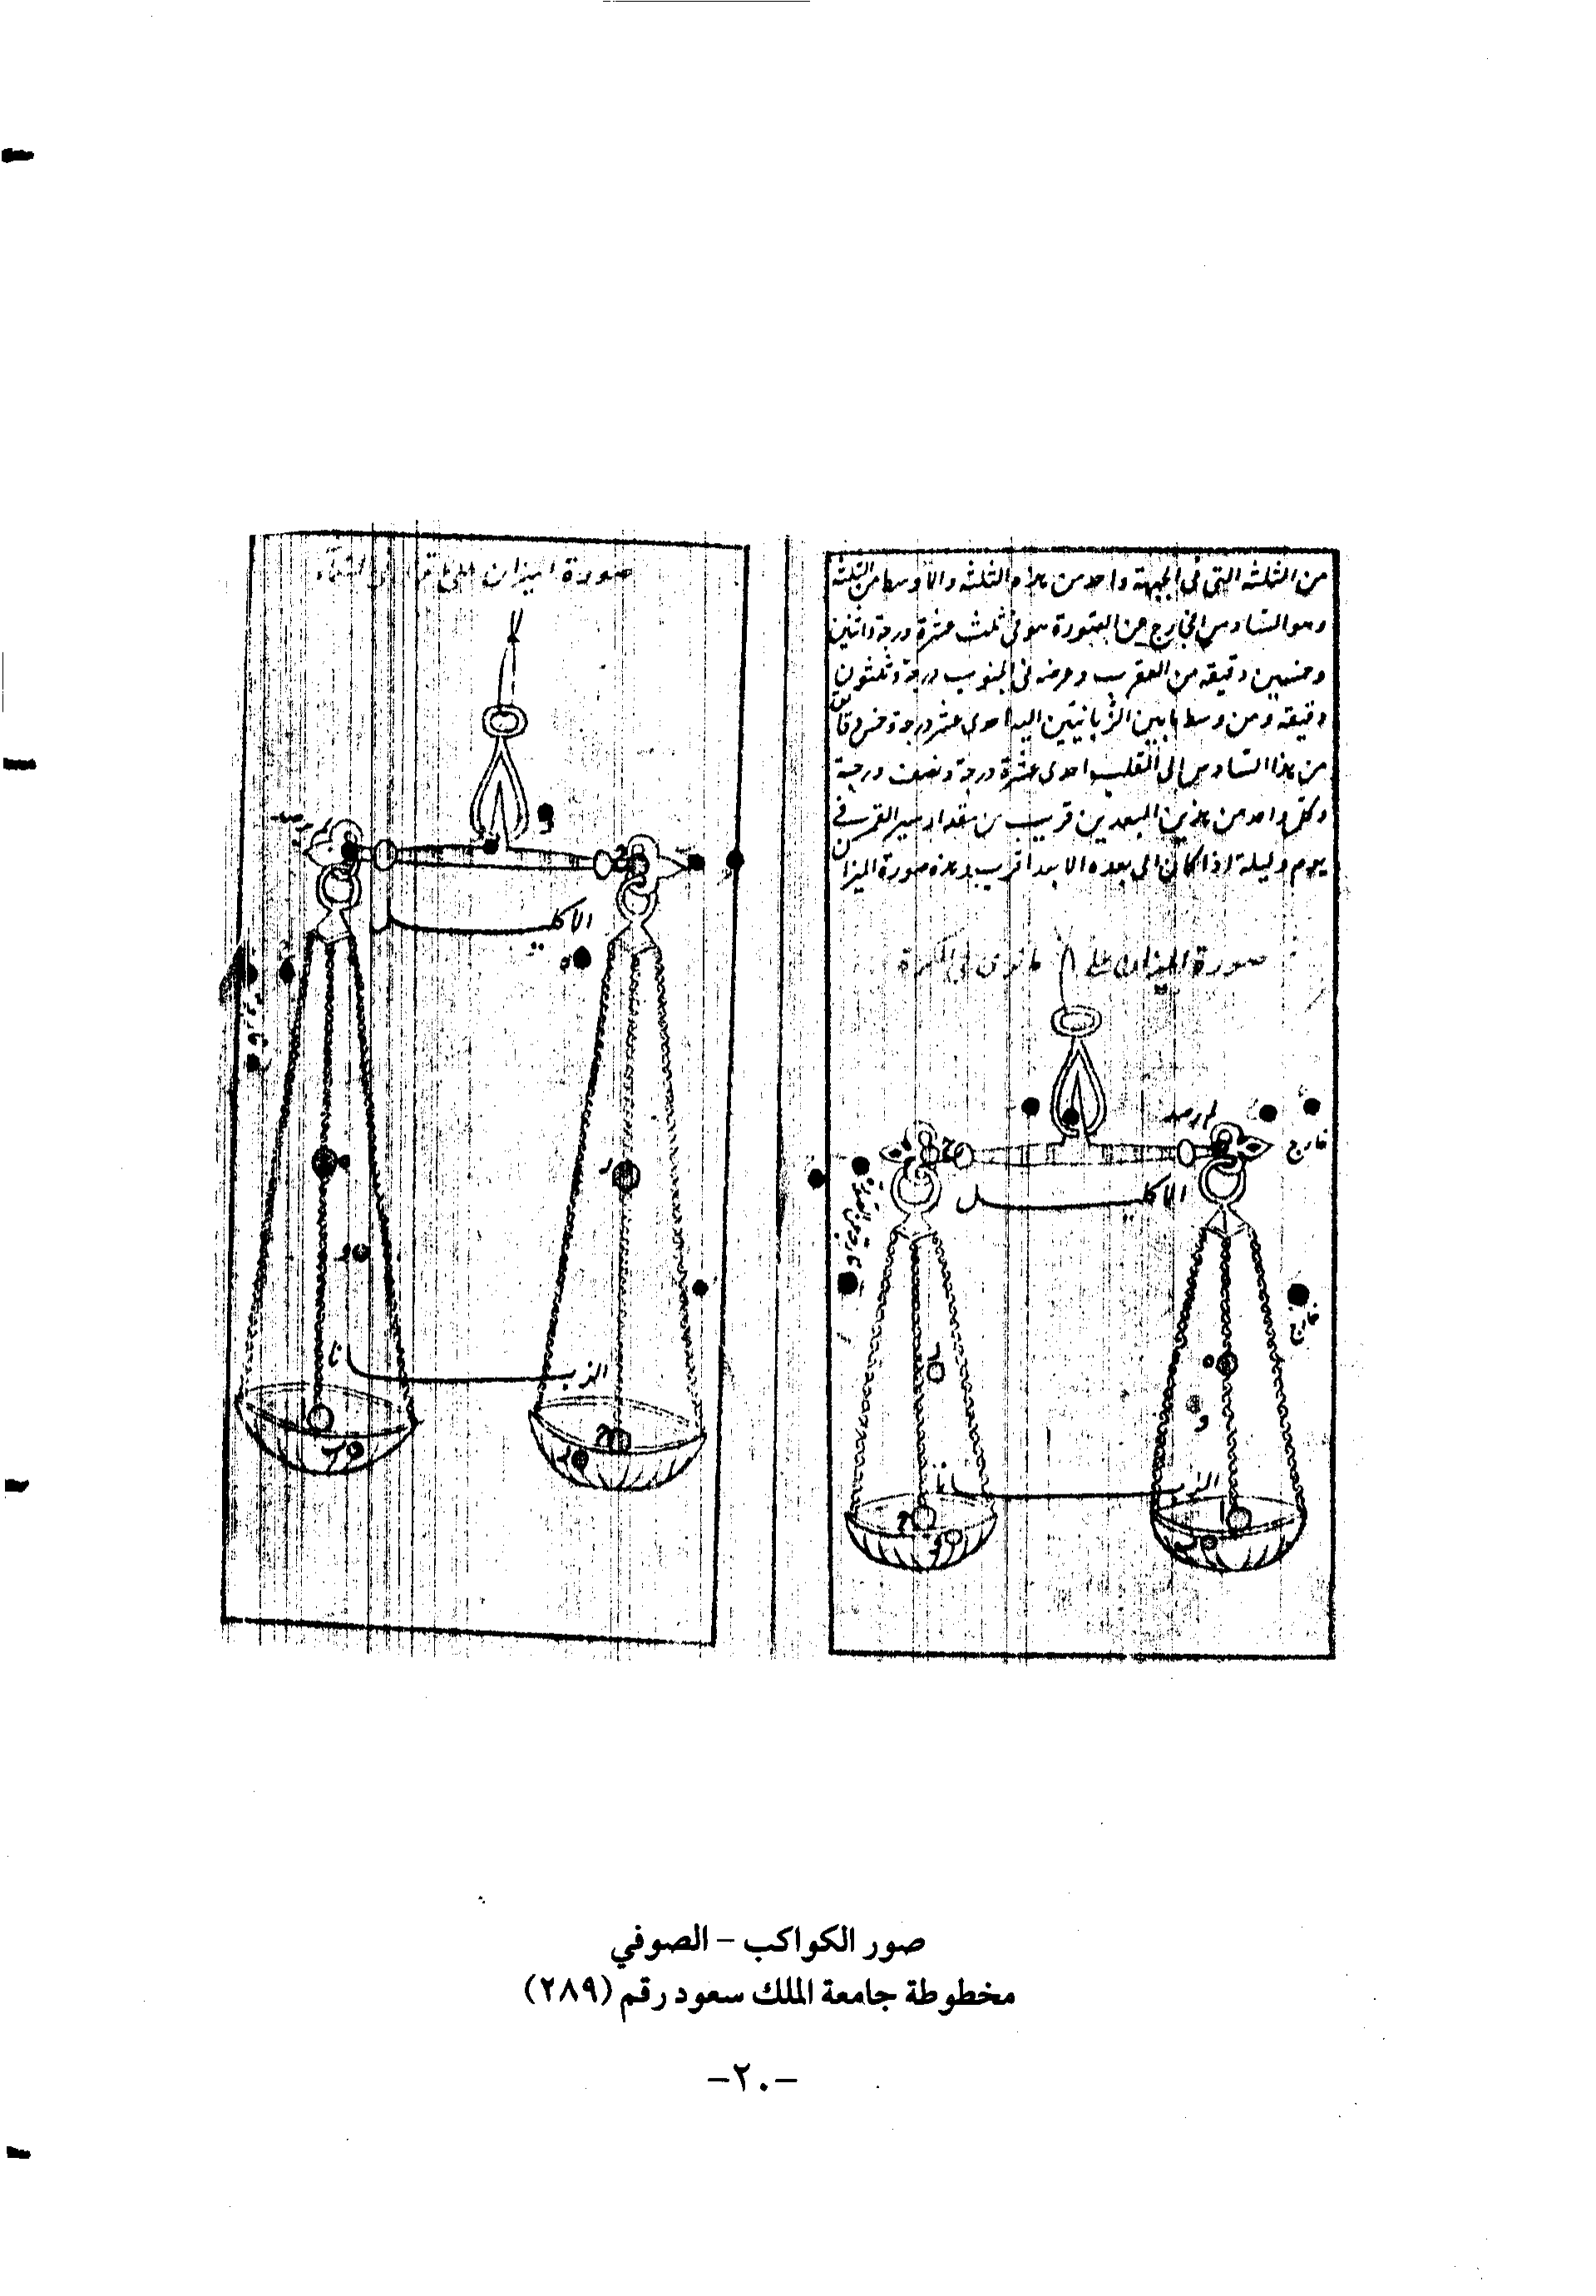 من الثلثة التي في الجبهة واحد من هذه الثلثة والاوسط من الثلثة
وهو السادس الخارج عن الصورة هو في ثلث عشرة درجة واثنين
وخمسين دقيقه من العقرب وعرضه في الجنوب درجة وثلثون
دقيقه ومن وسط ما بين الزبانيتين اليه احدى عشر درجة وخمس دقائق
من هذا السادس الى القلب احدى عشرة درجة ونصف درجة
وكل واحد من هذين البعدين قريب من مقدار سير القمر في
يوم وليلة اذا كان الى بعده الابعد اقرب وهذه صورة الميزان
صورة الميزان على ما ترى في الكرة
لم يرصد
خارج
الاكليل
الزبانا
صورة الميزان على ما
الاكليل
الزبانا
صور الكواكب - الصوفي
مخطوطة جامعة الملك سعود رقم (٢٨٩)
-٢٠-